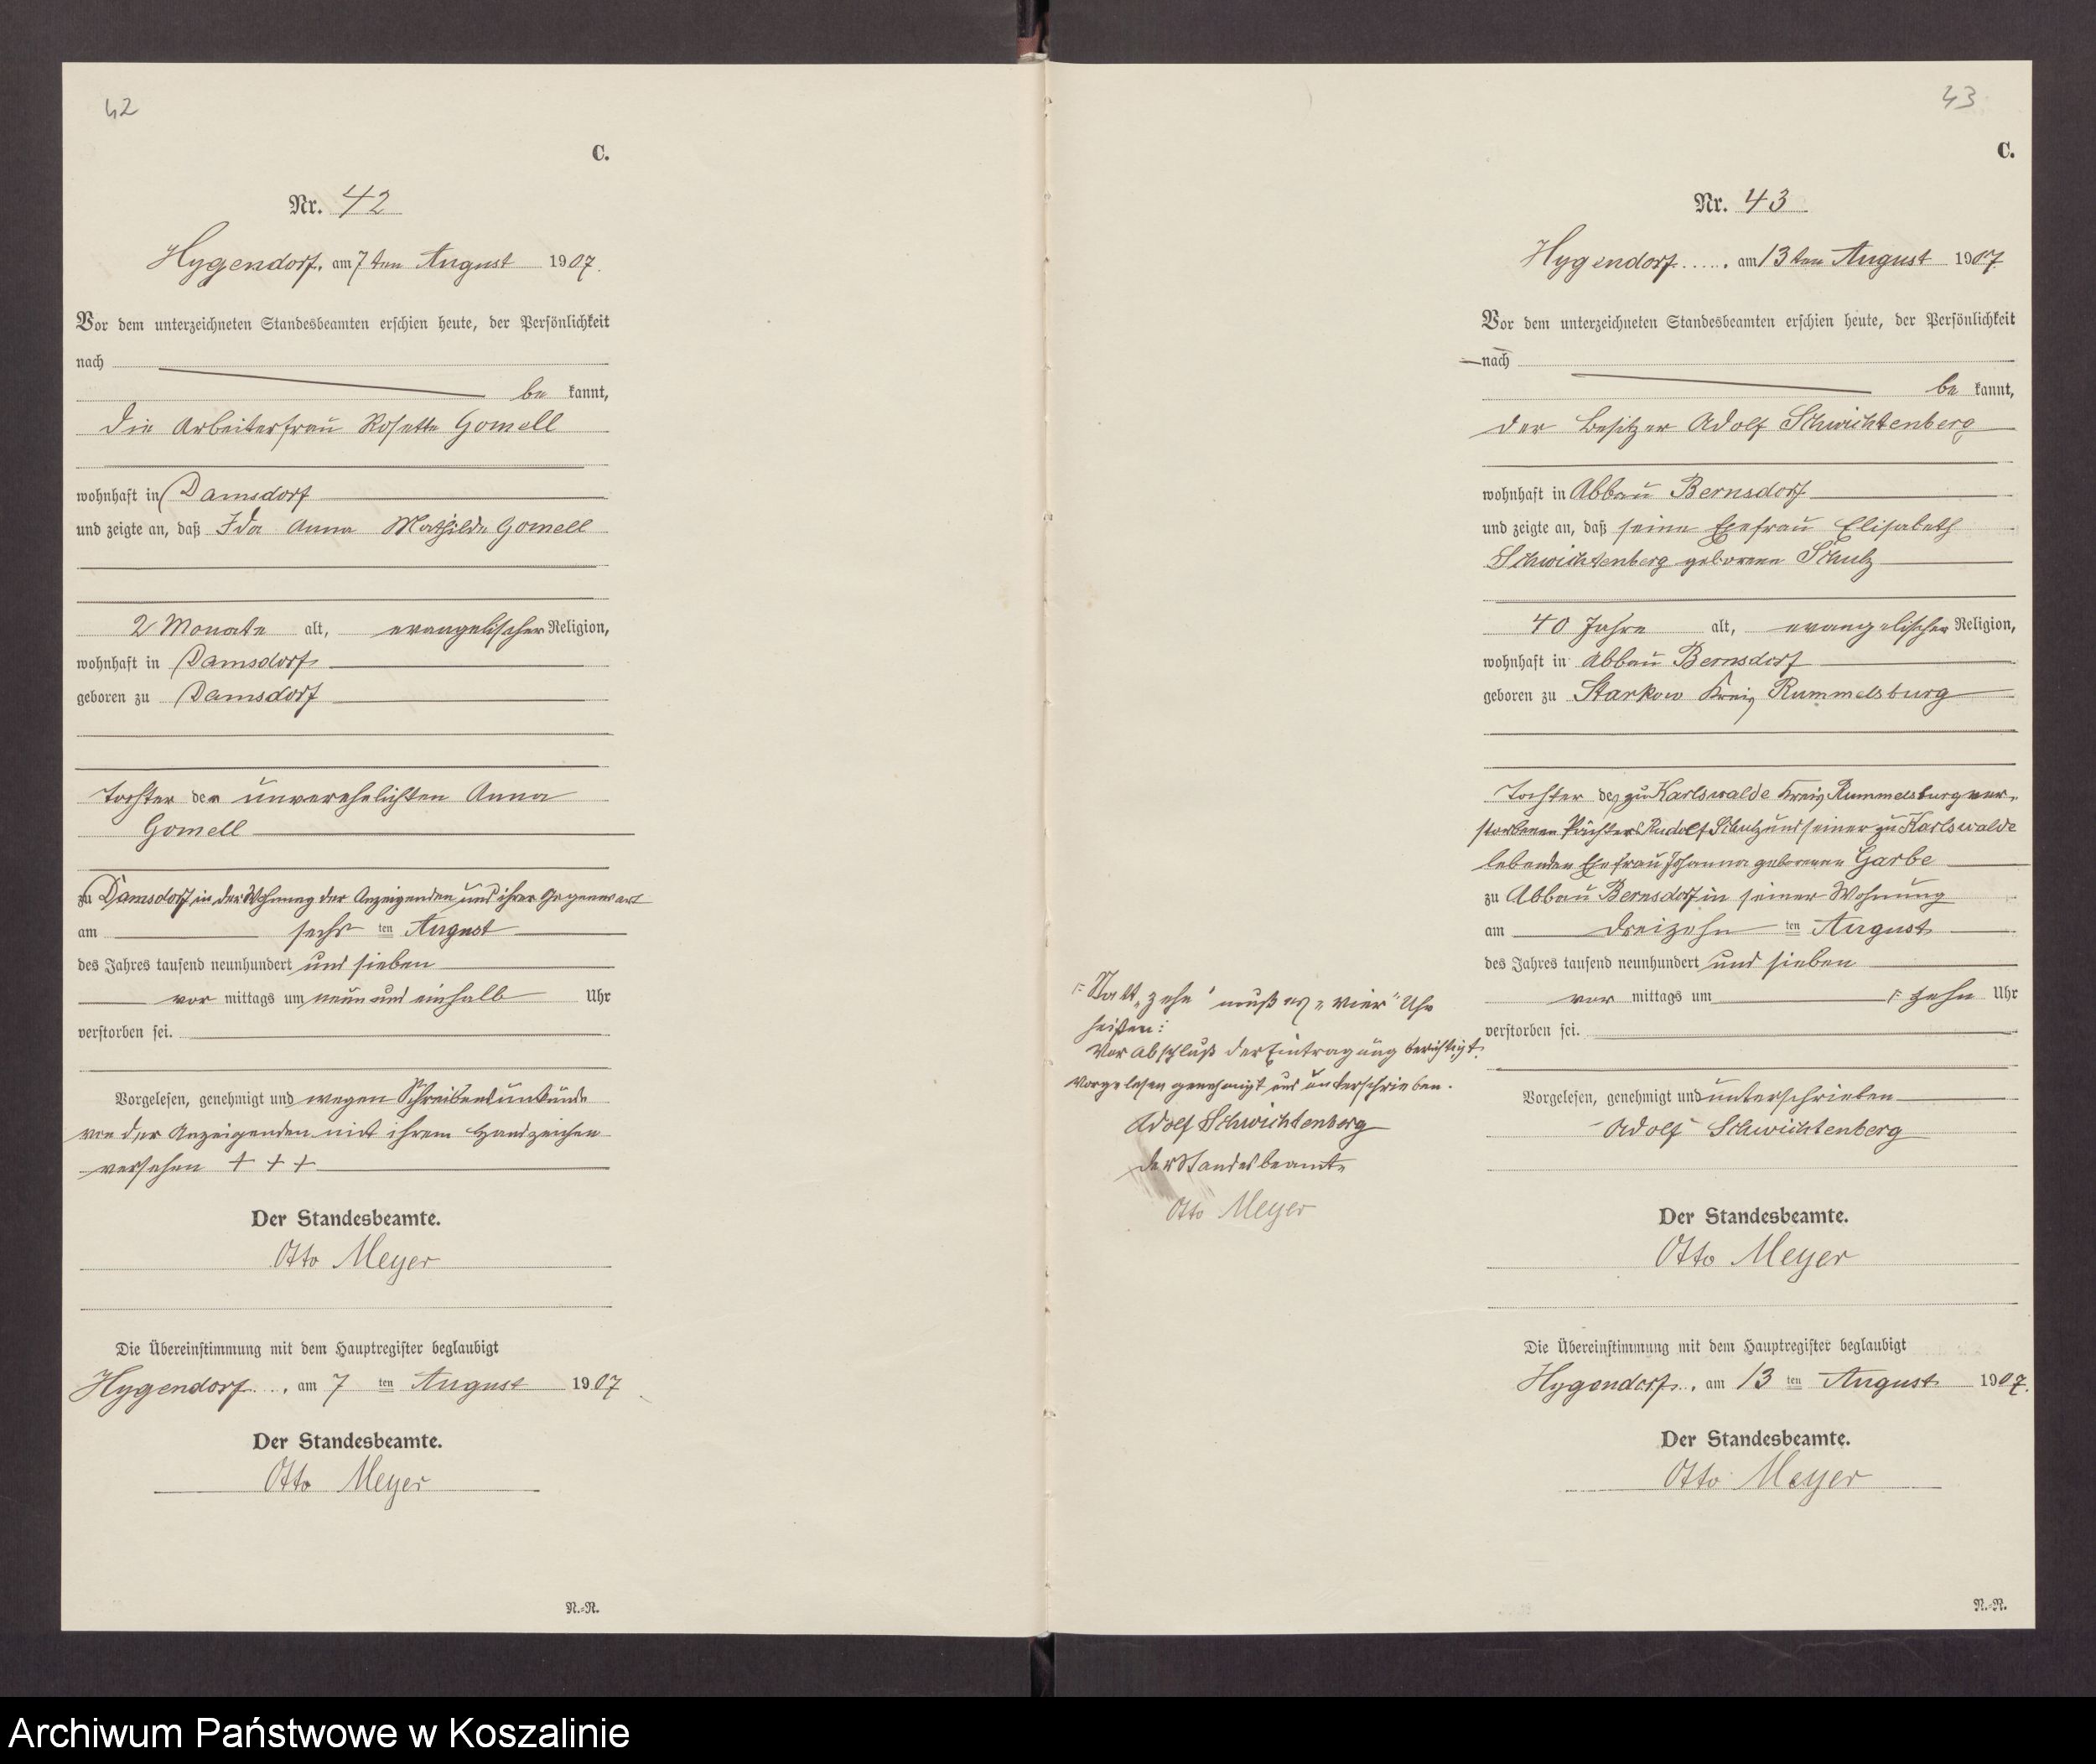 42
C.
Nr. 42
Hygendorf, am 7ten August 1907.
Vor dem unterzeichneten Standesbeamten erschien heute, der Persönlichkeit
nach
be kannt,
die Arbeiterfrau Rosette Gomell
wohnhaft in Damsdorf
und zeigte an, daß Ida Anna Mathilde Gomell
2 Monate alt, evangelischer Religion,
wohnhaft in Damsdorf
geboren zu Damsdorf
Tochter der unverehelichten Anna
Gomell
zu Damsdorf in der Wohnung der Anzeigenden und ihrer Gegenwart
am sechs ten August
des Jahres tausend neunhundert und sieben
vor mittags um neun und einhalb Uhr
verstorben sei.
Vorgelesen, genehmigt und wegen Schreibensunkunde
von der Anzeigenden mit ihrem Handzeichen
versehen + + +
Der Standesbeamte.
Otto Meyer
Die Übereinstimmung mit dem Hauptregister beglaubigt
Hygendorf, am 7 ten August 1907
Der Standesbeamte.
Otto Meyer
N.-R.
43
C.
Nr. 43
Hygendorf, am 13ten August 1907.
Vor dem unterzeichneten Standesbeamten erschien heute, der Persönlichkeit
nach
be kannt,
der Besitzer Adolf Schwichtenberg
wohnhaft in Abbau Bernsdorf
und zeigte an, daß seine Ehefrau Elisabeth
Schwichtenberg geborene Schulz
40 Jahre alt, evangelischer Religion,
wohnhaft in Abbau Bernsdorf
geboren zu Starkow Kreis Rummelsburg
Tochter des zu Karlswalde Kreis Rummelsburg ver-
storbenen Pächters Rudolf Schulz und seiner zu Karlswalde
lebenden Ehefrau Johanna geborenen Garbe
zu Abbau Bernsdorf in seiner Wohnung
am dreizehn ten August
des Jahres tausend neunhundert und sieben
vor mittags um zehn Uhr
verstorben sei.
Statt „zehn" muß es „vier" Uhr
heißen:
Vor Abschluß der Eintragung berichtigt.
Vorgelesen genehmigt und unterschrieben.
Adolf Schwichtenberg
Der Standesbeamte
Otto Meyer
Vorgelesen, genehmigt und unterschrieben
Adolf Schwichtenberg
Der Standesbeamte.
Otto Meyer
Die Übereinstimmung mit dem Hauptregister beglaubigt
Hygendorf, am 13 ten August 1907.
Der Standesbeamte.
Otto Meyer
N.-R.
Archiwum Państwowe w Koszalinie